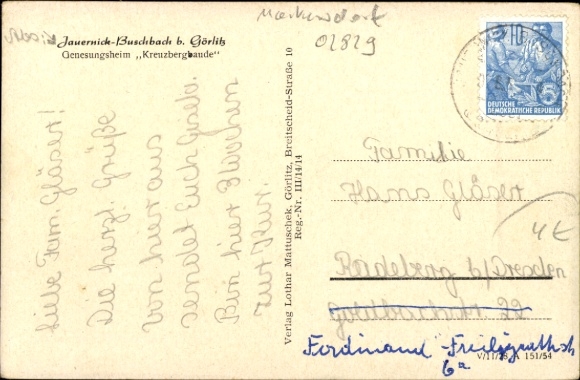 Markersdorf
02829
Jauernick-Buschbach b. Görlitz
Genesungsheim „Kreuzbergbaude"
Liebe Fam. Gläser!
Die herzl. Grüße
von hier aus
sendet Euch Gisela.
Bin hier 3 Wochen
zur Kur.
Verlag Lothar Mattuschek, Görlitz, Breitscheid-Straße 10
Reg.-Nr. III/14/14
10
5
DEUTSCHE
DEMOKRATISCHE REPUBLIK
Familie
Hans Gläser
4€
Radeberg b/Dresden
Goldbachstr. 22
Ferdinand-Freiligrathstr
6a
V/11/28 A 151/54